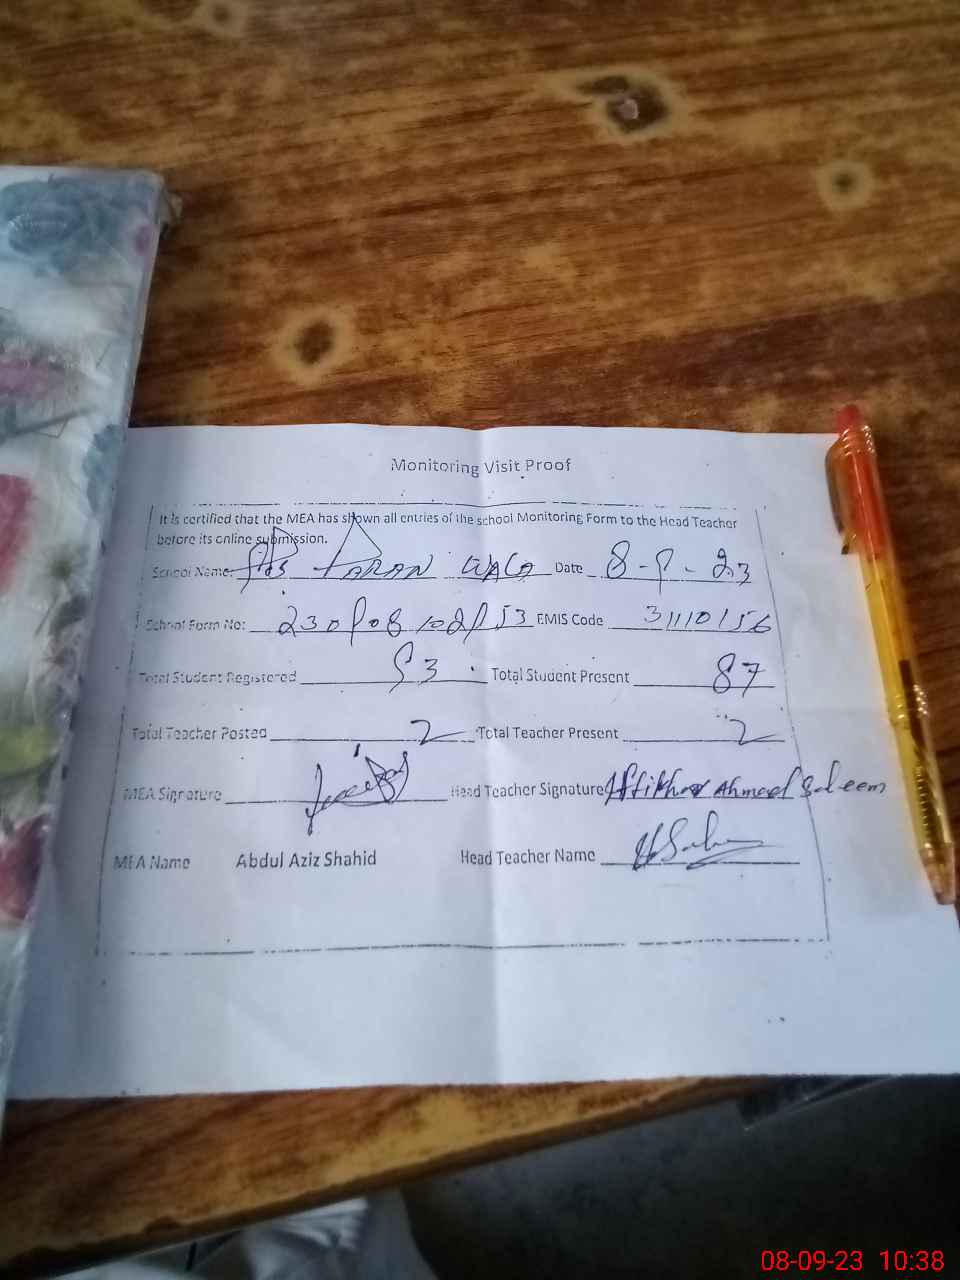 Monitoring Visit Proof
It is certified that the MEA has shown all entries of the school Monitoring Form to the Head Teacher
before its online submission.
School Name: TARAN WALA Date 8-9-23
School Form No: EMIS Code 31110156
Total Student Registered 93 Total Student Present 87
Total Teacher Posted 2 Total Teacher Present 2
MEA Signature Head Teacher Signature Iftikhar Ahmed Saleem
MEA Name Abdul Aziz Shahid Head Teacher Name
08-09-23 10:38